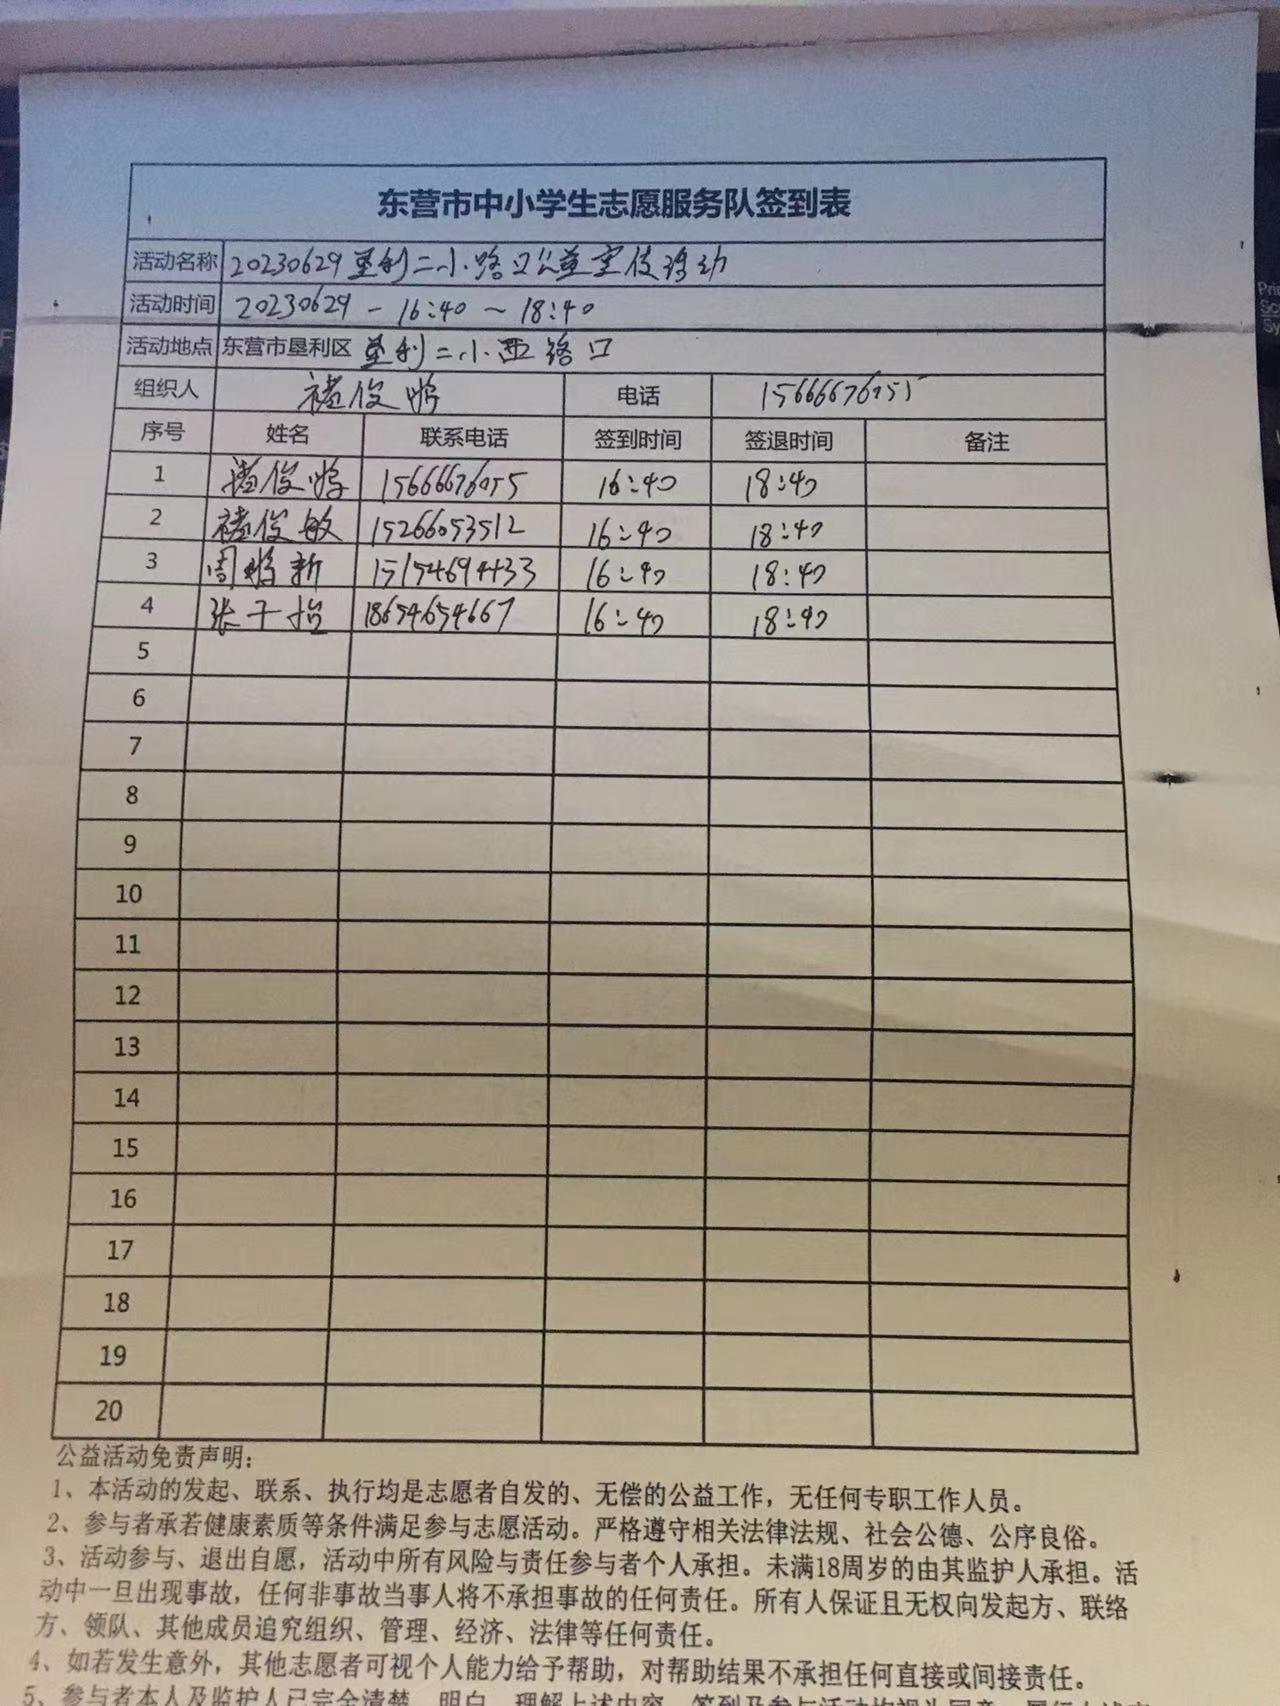 东营市中小学生志愿服务队签到表
活动名称 20230629垦利二小路口公益宣传活动
活动时间 20230629 - 16:40 ~ 18:40
活动地点 东营市垦利区 垦利二小西路口
组织人 褚俊鹏 电话 15666676055
序号 姓名 联系电话 签到时间 签退时间 备注
1 褚俊鹏 15666676055 16:40 18:40
2 褚俊敏 15266053512 16:40 18:40
3 周鹏新 15154694433 16:40 18:40
4 张于怡 18654654667 16:40 18:40
5
6
7
8
9
10
11
12
13
14
15
16
17
18
19
20
公益活动免责声明：
1、本活动的发起、联系、执行均是志愿者自发的、无偿的公益工作，无任何专职工作人员。
2、参与者承若健康素质等条件满足参与志愿活动。严格遵守相关法律法规、社会公德、公序良俗。
3、活动参与、退出自愿，活动中所有风险与责任参与者个人承担。未满18周岁的由其监护人承担。活
动中一旦出现事故，任何非事故当事人将不承担事故的任何责任。所有人保证且无权向发起方、联络
方、领队、其他成员追究组织、管理、经济、法律等任何责任。
4、如若发生意外，其他志愿者可视个人能力给予帮助，对帮助结果不承担任何直接或间接责任。
5、参与者本人及监护人已完全清楚、明白、理解上述内容，签到及参与活动均视为同意